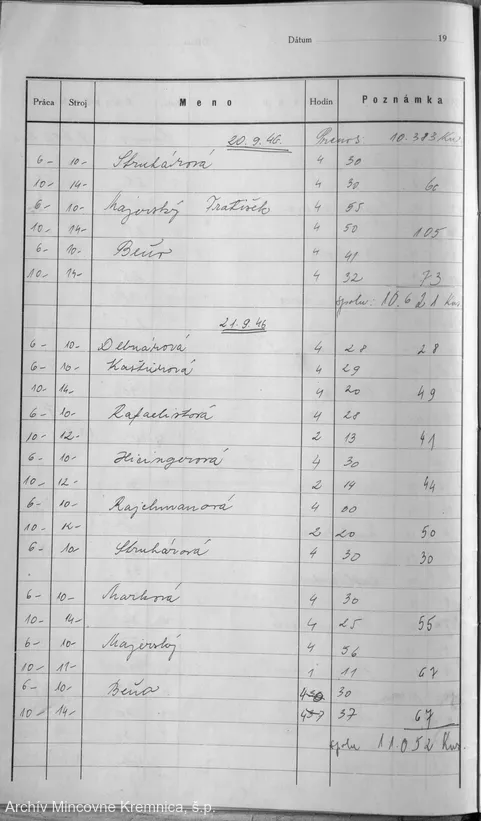 Dátum 19
Práca Stroj Meno Hodín Poznámka
20.9.46. Prenos 10.383 Kus
6- 10- Struhárová 4 30
10- 14- 4 30 60
6- 10- Majerský Fratišek 4 55
10- 14- 4 50 105
6- 10- Beňo 4 41
10- 14- 4 32 73
spolu: 10.621 Kus
21.9.46
6- 10- Debnárová 4 28 28
6- 10- 4 29
10- 14- 4 20 49
6- 10- 4 28
10- 12- 2 13 41
6- 10- Hicingerová 4 30
10- 12- 2 14 44
6- 10- Rajchmanová 4
10- 12- 2 20 50
6- 10- Struhárová 4 30 30
6- 10- Marková 4 30
10- 14- 4 25 55
6- 10- Majerský 4 56
10- 11- 1 11 67
6- 10- Beňo 4 30
10- 14- 4 37 67
spolu 11.052 Kus.
Archív Mincovne Kremnica, š.p.